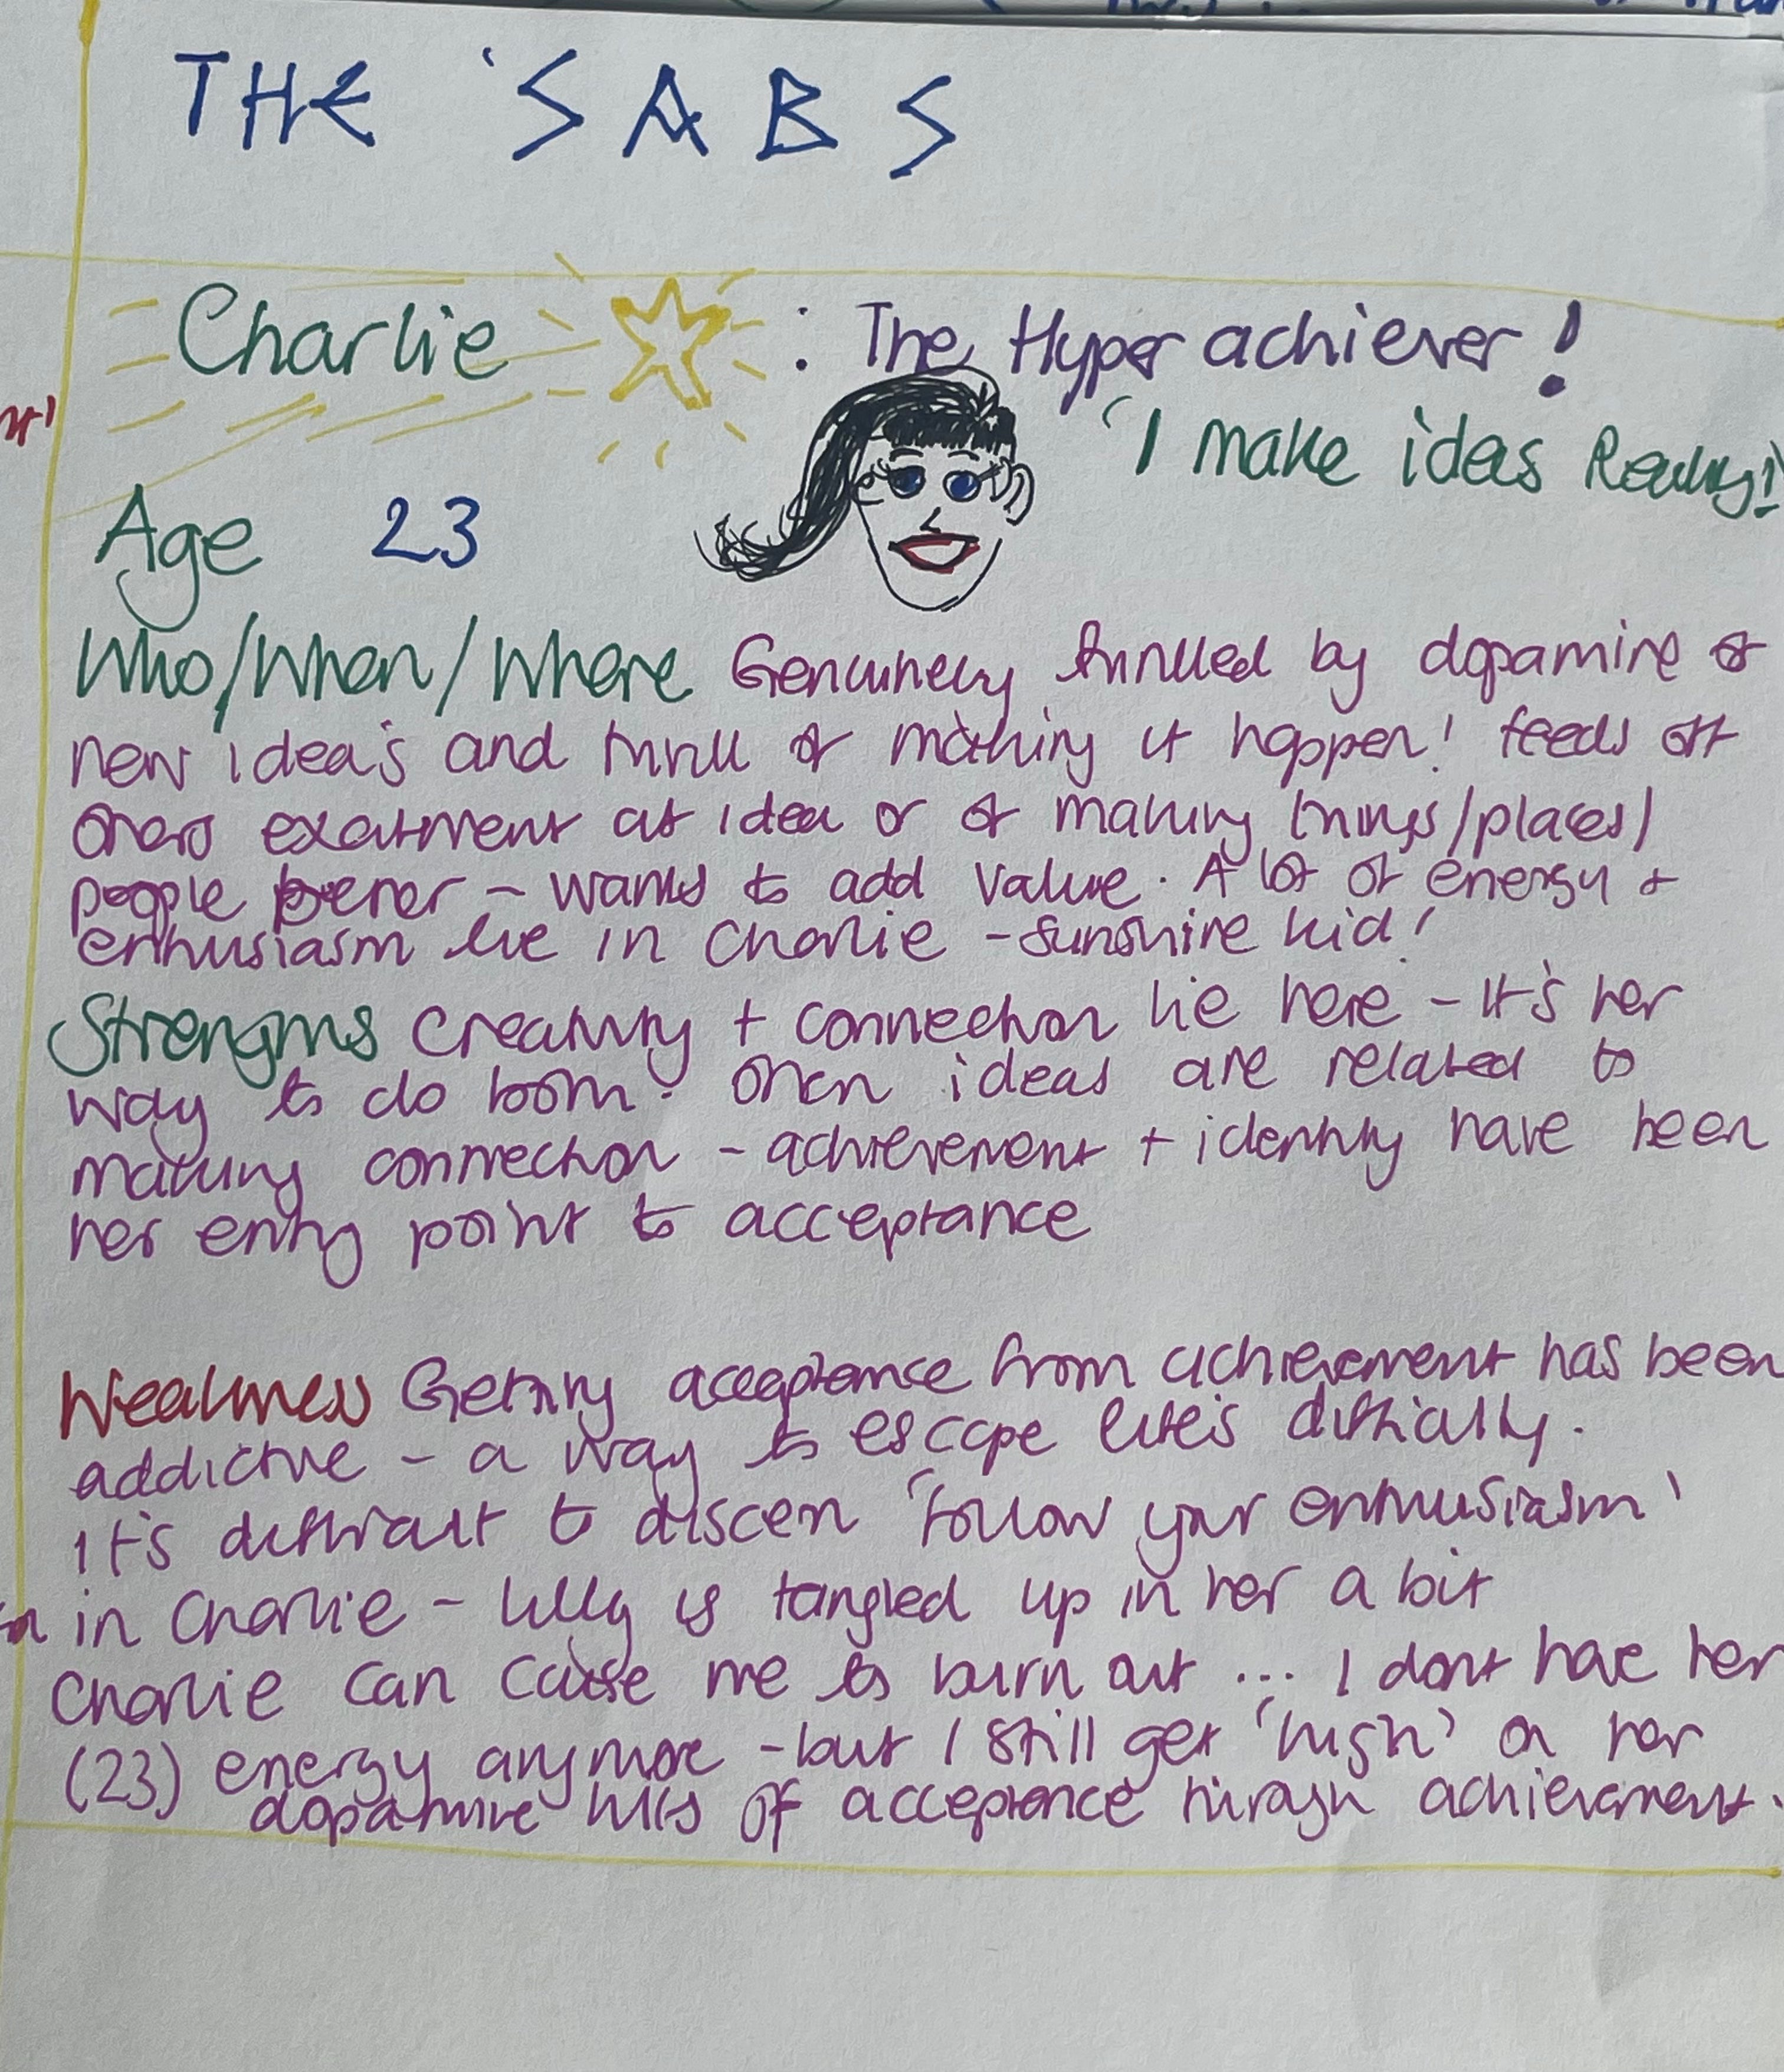 THE 'SABS
Charlie : The Hyper achiever!
'I make ideas Reality!
Age 23
Who/When/Where Genuinely thrilled by dopamine of
new idea's and thrill of making it happen! feeds off
others excitment at idea or of making things/places/
people better - wants to add value. A lot of energy +
enthusiasm lie in Charlie - sunshine kid!
Strengths Creativity + connection lie here - It's her
way to do both. Often ideas are related to
making connection - achievement + identity have been
her entry point to acceptance
Weakness Getting acceptance from achievement has been
addictive - a way to escape life's difficulty.
It's difficult to discern 'follow your enthusiasm'
in Charlie - Lilly is tangled up in her a bit
Charlie can cause me to burn out ... I dont have her
(23) energy anymore - but I still get 'high' on her
dopamine hits of acceptance through achievement.